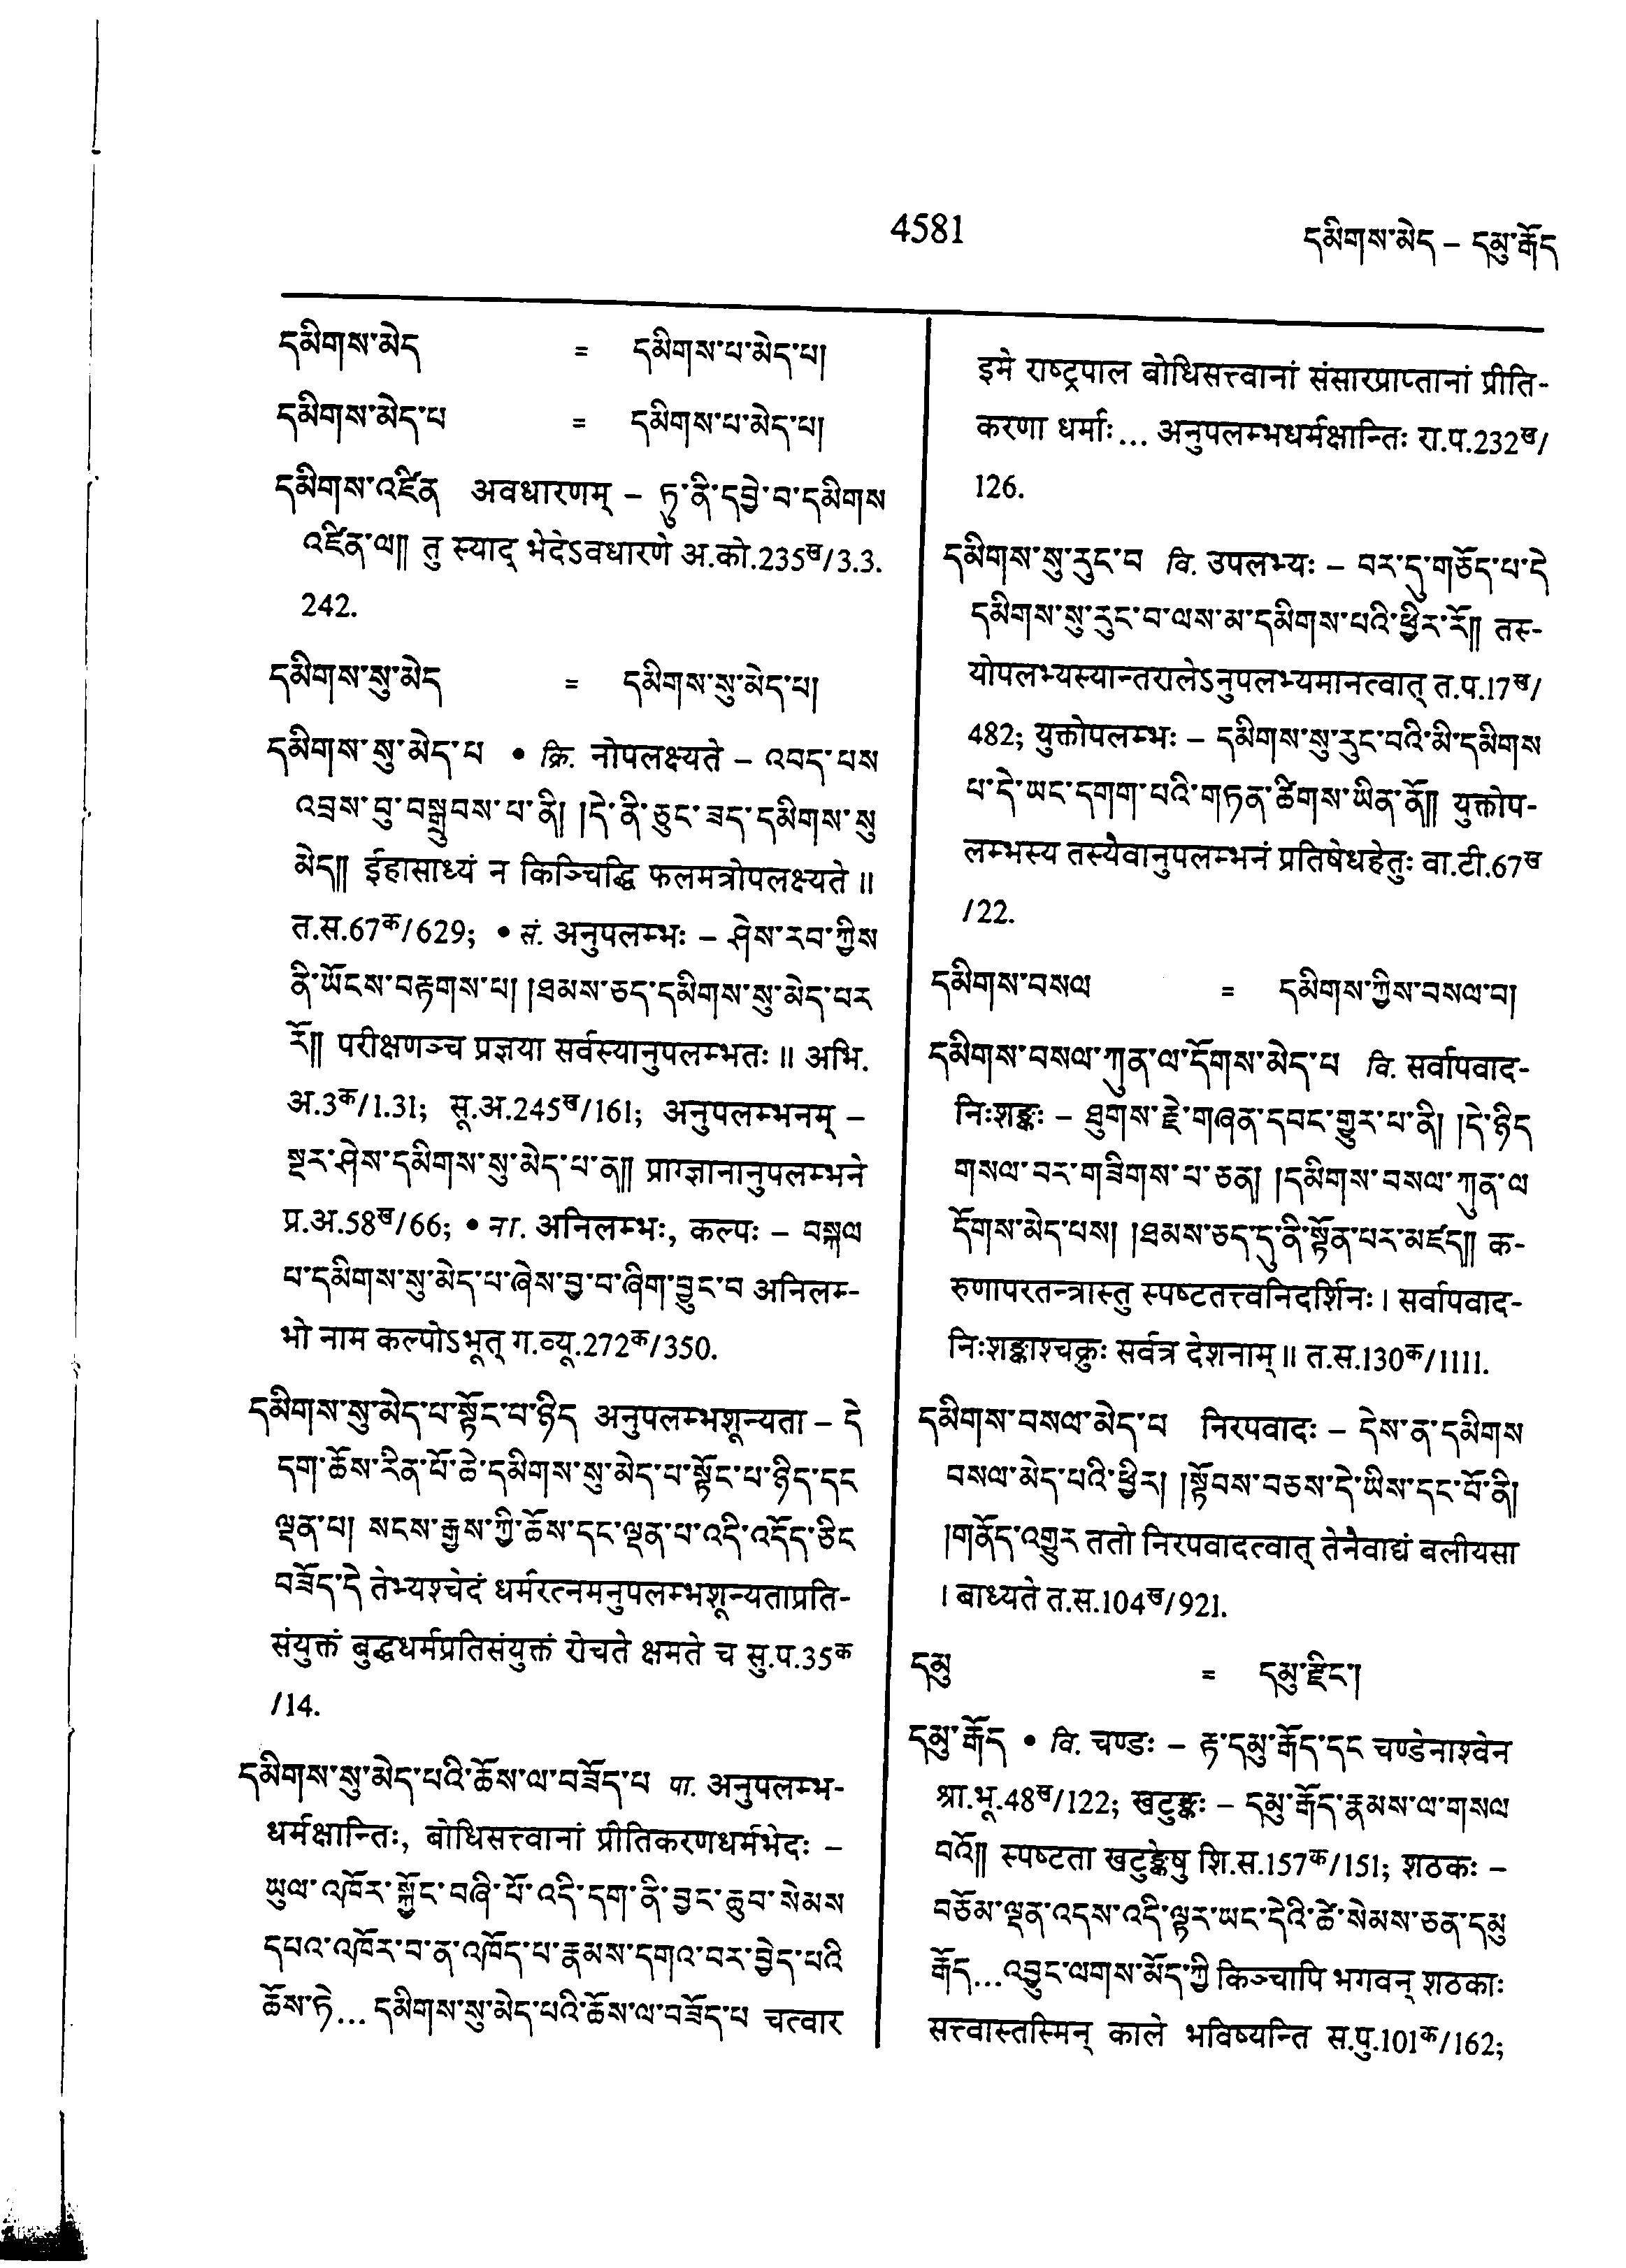 4581
དམིགས་མེད – དམུ་རྒོད
དམིགས་མེད = དམིགས་པ་མེད་པ།
དམིགས་མེད་པ = དམིགས་པ་མེད་པ།
དམིགས་འཛིན अवधारणम् – ཏུ་ནི་དབྱེ་བ་དམིགས
འཛིན་ལ།། तु स्याद् भेदेऽवधारणे अ.को.235ख/3.3.
242.
དམིགས་སུ་མེད = དམིགས་སུ་མེད་པ།
དམིགས་སུ་མེད་པ • क्रि. नोपलक्ष्यते – འབད་པས
འབྲས་བུ་བསྒྲུབས་པ་ནི། །དེ་ནི་ཅུང་ཟད་དམིགས་སུ
མེད།། ईहासाध्यं न किञ्चिद्धि फलमत्रोपलक्ष्यते ॥
त.स.67क/629; • सं. अनुपलम्भः – ཤེས་རབ་ཀྱིས
ནི་ཡོངས་བརྟགས་པ། །ཐམས་ཅད་དམིགས་སུ་མེད་པར
རོ།། परीक्षणञ्च प्रज्ञया सर्वस्यानुपलम्भतः ॥ अभि.
अ.3क/1.31; सू.अ.245ख/161; अनुपलम्भनम् –
སྔར་ཤེས་དམིགས་སུ་མེད་པ་ན།། प्राग्ज्ञानानुपलम्भने
प्र.अ.58ख/66; • ना. अनिलम्भः, कल्पः – བསྐལ
པ་དམིགས་སུ་མེད་པ་ཞེས་བྱ་བ་ཞིག་བྱུང་བ अनिलम्-
भो नाम कल्पोऽभूत् ग.व्यू.272क/350.
དམིགས་སུ་མེད་པ་སྟོང་པ་ཉིད अनुपलम्भशून्यता – དེ
དག་ཆོས་རིན་པོ་ཆེ་དམིགས་སུ་མེད་པ་སྟོང་པ་ཉིད་དང
ལྡན་པ། སངས་རྒྱས་ཀྱི་ཆོས་དང་ལྡན་པ་འདི་འདོད་ཅིང
བཟོད་དེ तेभ्यश्चेदं धर्मरत्नमनुपलम्भशून्यताप्रति-
संयुक्तं बुद्धधर्मप्रतिसंयुक्तं रोचते क्षमते च सु.प.35क
/14.
དམིགས་སུ་མེད་པའི་ཆོས་ལ་བཟོད་པ पा. अनुपलम्भ-
धर्मक्षान्तिः, बोधिसत्त्वानां प्रीतिकरणधर्मभेदः –
ཡུལ་འཁོར་སྐྱོང་བཞི་པོ་འདི་དག་ནི་བྱང་ཆུབ་སེམས
དཔའ་འཁོར་བ་ན་འཁོད་པ་རྣམས་དགའ་བར་བྱེད་པའི
ཆོས་ཏེ... དམིགས་སུ་མེད་པའི་ཆོས་ལ་བཟོད་པ चत्वार
इमे राष्ट्रपाल बोधिसत्त्वानां संसारप्राप्तानां प्रीति-
करणा धर्माः... अनुपलम्भधर्मक्षान्तिः रा.प.232ख/
126.
དམིགས་སུ་རུང་བ वि. उपलभ्यः – བར་དུ་གཅོད་པ་དེ
དམིགས་སུ་རུང་བ་ལས་མ་དམིགས་པའི་ཕྱིར་རོ།། तस्-
योपलभ्यस्यान्तरालेऽनुपलभ्यमानत्वात् त.प.17ख/
482; युक्तोपलम्भः – དམིགས་སུ་རུང་བའི་མི་དམིགས
པ་དེ་ཡང་དགག་པའི་གཏན་ཚིགས་ཡིན་ནོ།། युक्तोप-
लम्भस्य तस्यैवानुपलम्भनं प्रतिषेधहेतुः वा.टी.67ख
/22.
དམིགས་བསལ = དམིགས་ཀྱིས་བསལ་བ།
དམིགས་བསལ་ཀུན་ལ་དོགས་མེད་པ वि. सर्वापवाद-
निःशङ्कः – ཐུགས་རྗེ་གཞན་དབང་གྱུར་པ་ནི། །དེ་ཉིད
གསལ་བར་གཟིགས་པ་ཅན། །དམིགས་བསལ་ཀུན་ལ
དོགས་མེད་པས། །ཐམས་ཅད་དུ་ནི་སྟོན་པར་མཛད།། क-
रुणापरतन्त्रास्तु स्पष्टतत्त्वनिदर्शिनः। सर्वापवाद-
निःशङ्काश्चक्रुः सर्वत्र देशनाम्॥ त.स.130क/1111.
དམིགས་བསལ་མེད་པ निरपवादः – དེས་ན་དམིགས
བསལ་མེད་པའི་ཕྱིར། །སྟོབས་བཅས་དེ་ཡིས་དང་པོ་ནི།
།གནོད་འགྱུར ततो निरपवादत्वात् तेनैवाद्यं बलीयसा
। बाध्यते त.स.104ख/921.
དམུ = དམུ་རྫིང་།
དམུ་རྒོད • वि. चण्डः – རྟ་དམུ་རྒོད་དང चण्डेनाश्वेन
श्रा.भू.48ख/122; खटुङ्कः – དམུ་རྒོད་རྣམས་ལ་གསལ
བའོ།། स्पष्टता खटुङ्केषु शि.स.157क/151; शठकः –
བཅོམ་ལྡན་འདས་འདི་ལྟར་ཡང་དེའི་ཚེ་སེམས་ཅན་དམུ
རྒོད...འབྱུང་ལགས་མོད་ཀྱི किञ्चापि भगवन् शठकाः
सत्त्वास्तस्मिन् काले भविष्यन्ति स.पु.101क/162;